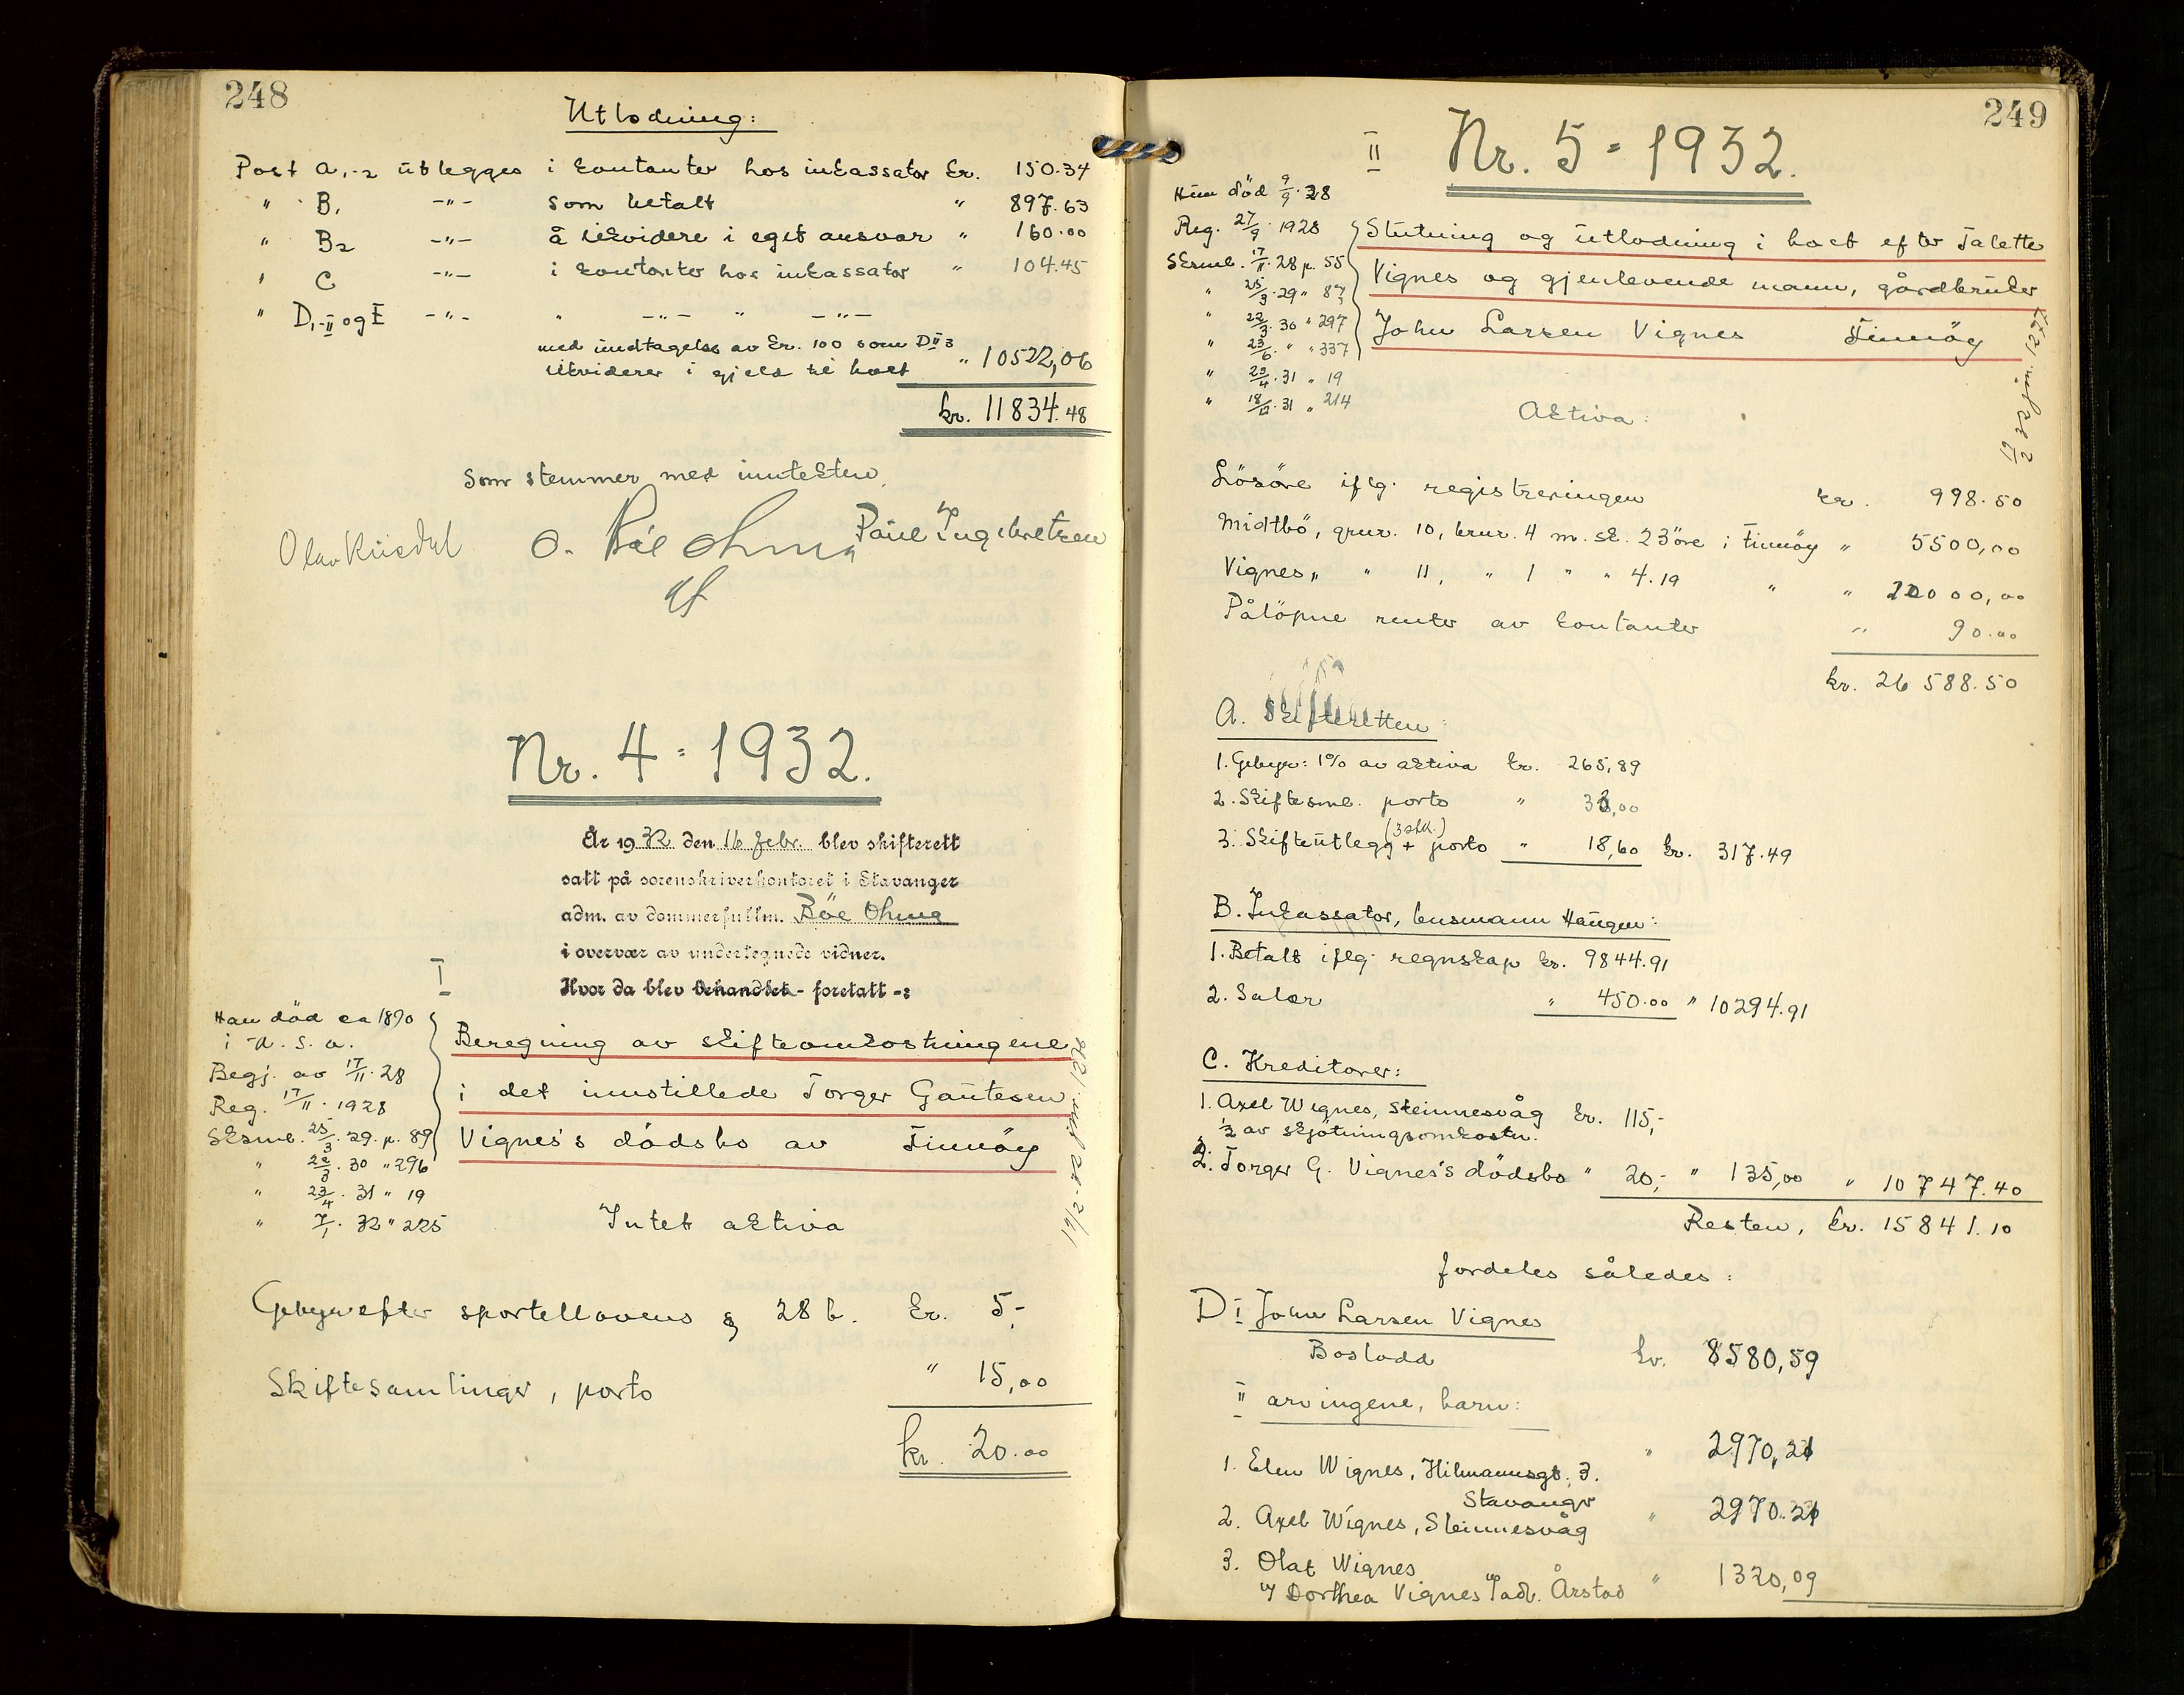 248
Utlodning:
Post A,1-2 utlegges i kontanter hos inkassator kr. 150.34
" B1 -"- som betalt " 897.63
" B2 -"- å likvidere i eget ansvar " 160.00
" C -"- i kontanter hos inkassator " 104.45
" D,I-II og E -"- " -"- " -"-
med undtagelse av kr. 100 som DII3
likviderer i gjeld til boet " 10522,06
kr. 11834.48
Som stemmer med inntekten.
O. Bøe Ohma Paul Ingebretsen
Nr. 4 = 1932.
År 1932 den 16 febr. blev skifterett
satt på sorenskriverkontoret i Stavanger
adm. av dommerfullm. Böe Ohma
i overvær av undertegnede vidner.
Hvor da blev behandlet - foretatt -:
I
Han död ca 1890
i U.S.A.
Begj. av 17/11.28
Reg. 17/11.1928
Sksml. 25/3.29.p.89
" 22/3.30 " 296
" 23/4.31 " 19
" 7/1.32 " 225
Beregning av skifteomkostningene
i det innstillede Torger Gautesen
Vignes's dödsbo av Finnöy
19/2-32 jnr. 1276
Intet aktiva
Gebyr efter sportellovens § 28 b. kr. 5,-
Skiftesamlinger, porto " 15,00
kr. 20.00
249
II
Nr. 5 = 1932.
Hun död 9/9.28
Reg. 27/9.1928
Sksml. 17/11.28 p. 55
" 25/3.29 " 87
" 22/3.30 " 297
" 23/6. " " 337
" 23/4.31 " 19
" 18/12.31 " 214
Slutning og utlodning i boet efter Talette
Vignes og gjenlevende mann, gårdbruker
John Larsen Vignes Finnöy
19/2 32 jnr. 1277
Aktiva:
Lösöre iflg. registreringen kr. 998.50
Midtbö, gnr. 10, bnr. 4 m. sk. 23 öre i Finnöy " 5500,00
Vignes, " 11, " 1 " " 4.19 " " 20000,00
Pålöpne renter av kontanter " 90.00
kr. 26 588.50
A. Skifteretten:
1. Gebyr: 1% av aktiva kr. 265,89
2. Skiftesml. porto " 33,00
3. Skifteutlegg (3 stk.) + porto " 18,60 kr. 317.49
B. Inkassator, lensmann Haugen:
1. Betalt iflg. regnskap kr. 9844.91
2. Salær " 450.00 " 10294.91
C. Kreditorer:
1. Axel Wignes, Steinnesvåg kr. 115,-
1/2 av skjötningsomkostn.
2. Torger G. Vignes's dödsbo " 20,- " 135,00 " 10 747.40
Resten, kr. 15841.10
fordeles således:
D I John Larsen Vignes
Boslodd kr. 8580,59
II arvingene, barn:
1. Elen Wignes, Hilmannsgt. 3. " 2970,21
Stavanger
2. Axel Wignes, Steinnesvåg " 2970.21
3. Olaf Wignes
v/ Dorthea Vignes p adr. Årstad " 1320,09